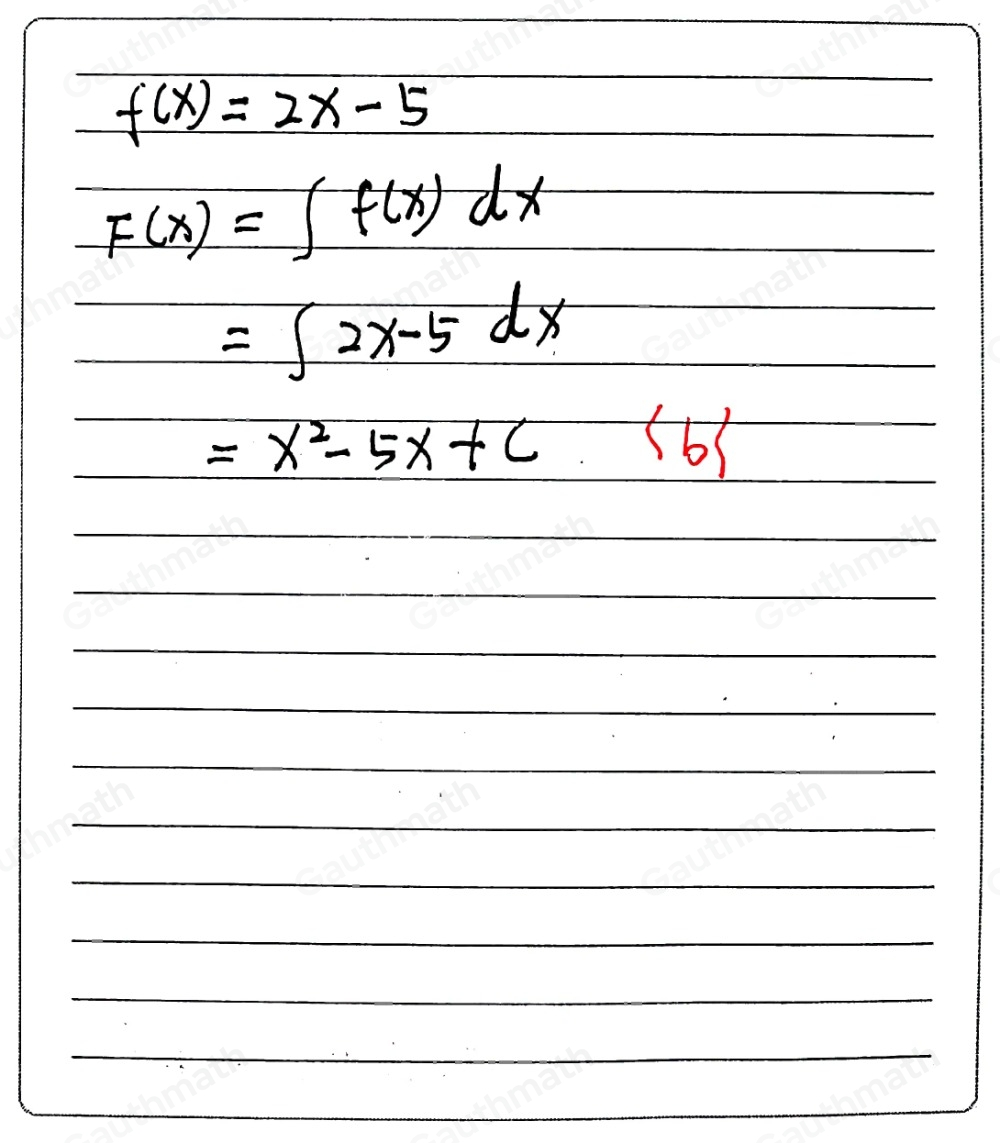 f(x) = 2x - 5
F(x) = ∫ f(x) dx
= ∫ 2x-5 dx
= x² - 5x + C {b{
Gauthmath